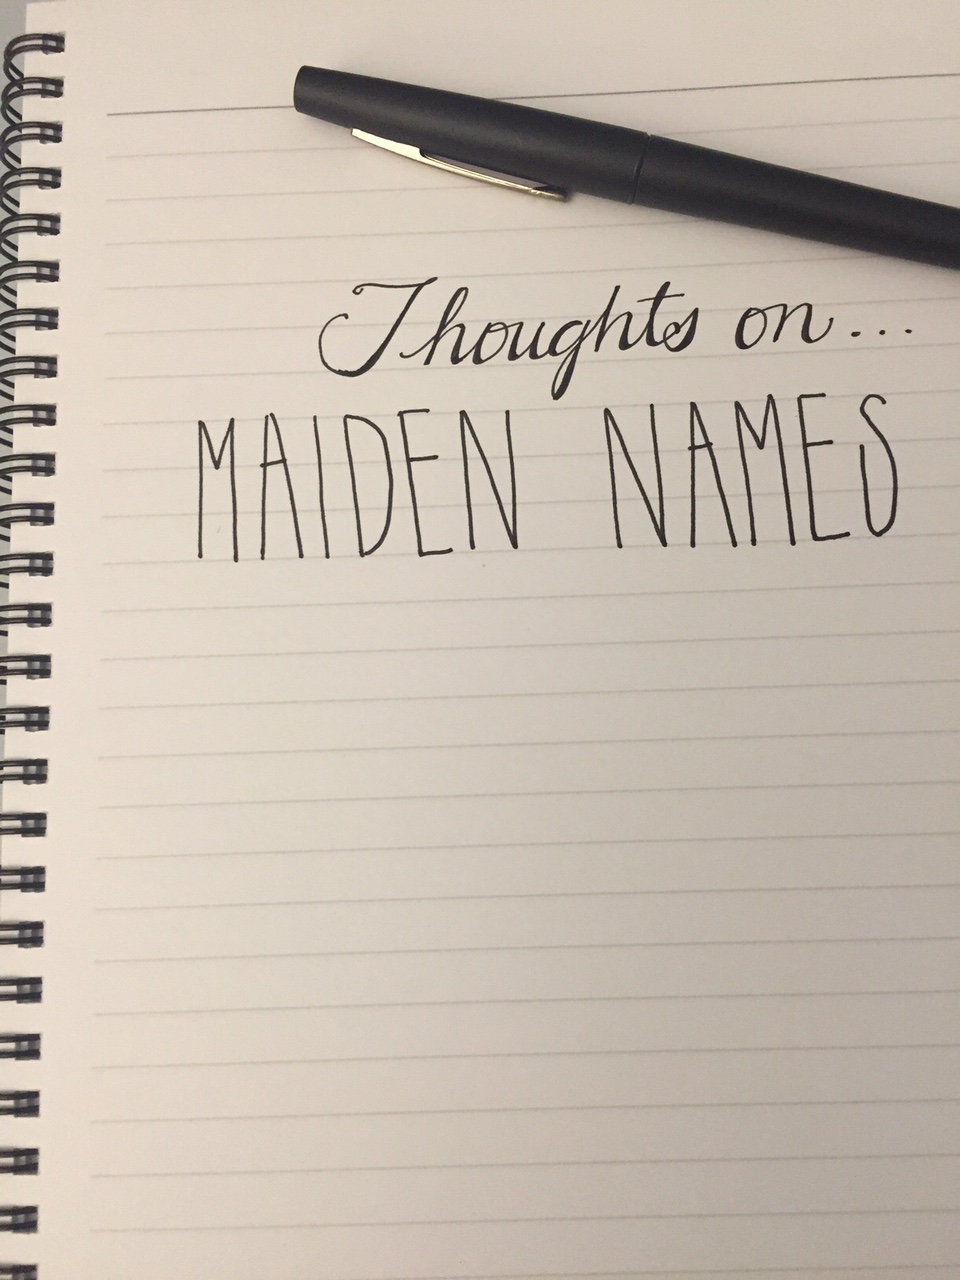 Thoughts on...
MAIDEN NAMES